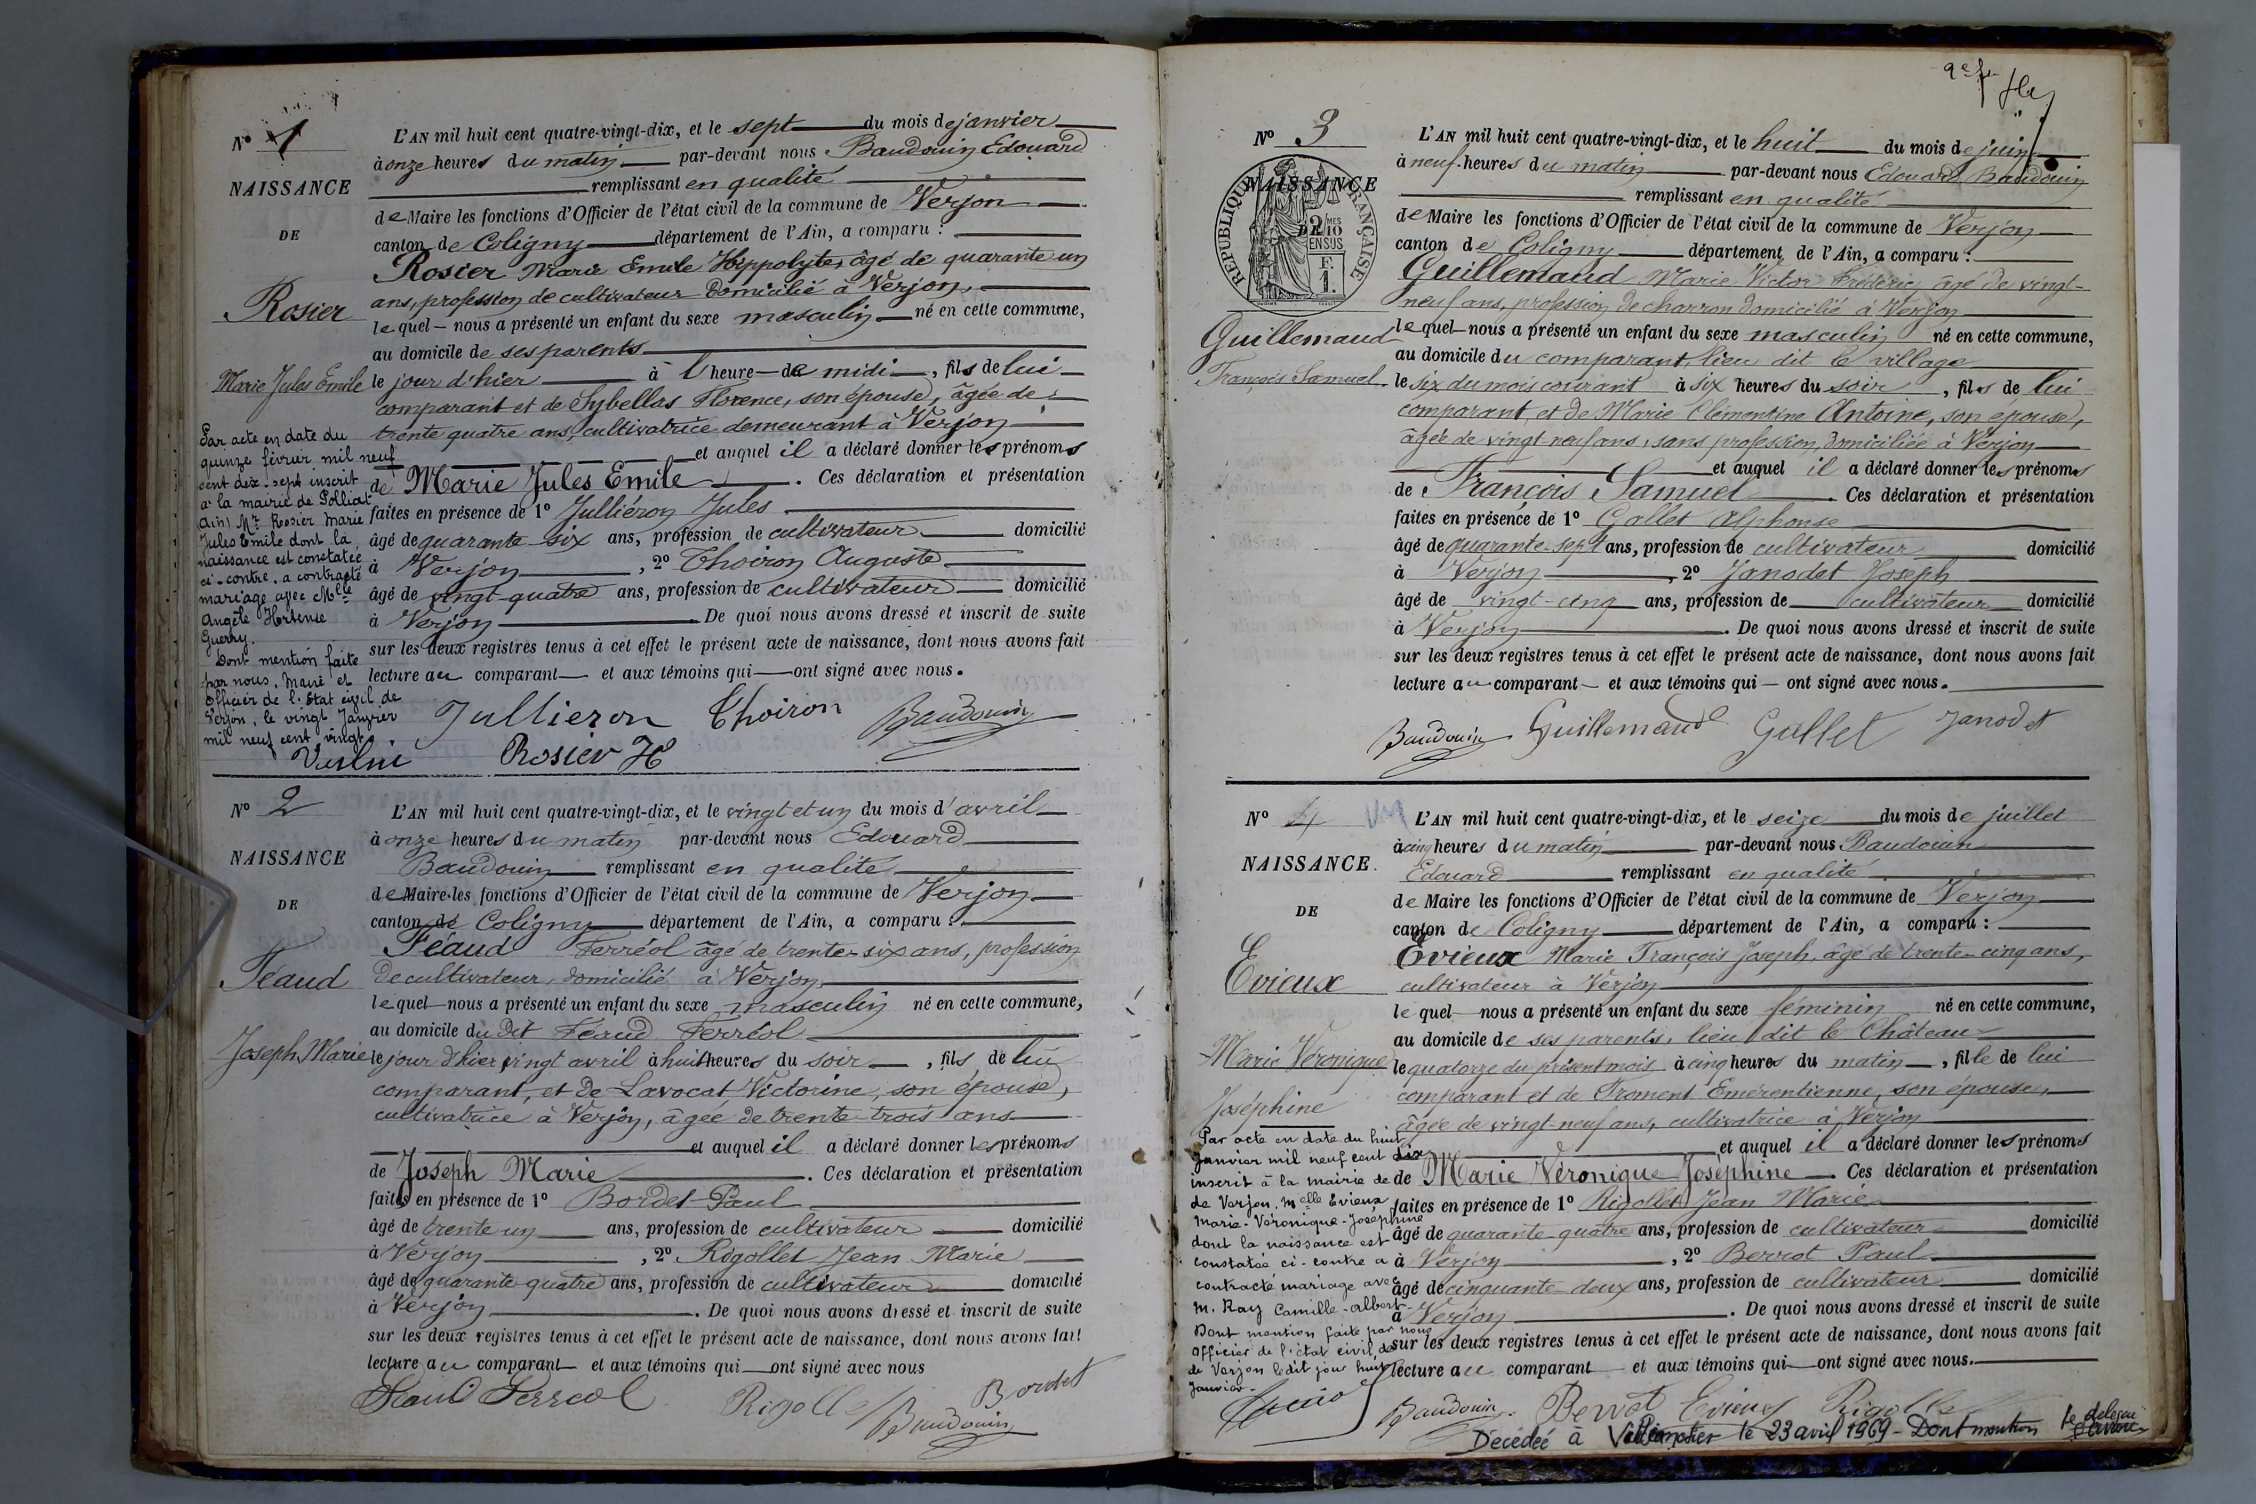 N° 1
NAISSANCE
DE
Rosier
Marie Jules Emile
Par acte en date du
quinze février mil neuf
cent dix-sept inscrit
à la mairie de Polliat
(Ain) Mr Rosier Marie
Jules Emile dont la
naissance est constatée
ci-contre, a contracté
mariage avec Mlle
Angèle Hortense
Guerry.
Dont mention faite
par nous, Maire et
Officier de l'Etat civil de
Verjon, le vingt Janvier
mil neuf cent vingt.
L'AN mil huit cent quatre-vingt-dix, et le sept du mois de janvier
à onze heures du matin par-devant nous Baudouin Edouard
remplissant en qualité
de Maire les fonctions d'Officier de l'état civil de la commune de Verjon
canton de Coligny département de l'Ain, a comparu :
Rosier Marie Emile Hippolyte, âgé de quarante un
ans, profession de cultivateur domicilié à Verjon,
lequel nous a présenté un enfant du sexe masculin né en cette commune,
au domicile de ses parents
le jour d'hier à l heure de midi, fils de lui
comparant et de Sybellas Florence, son épouse, âgée de
trente quatre ans, cultivatrice demeurant à Verjon
et auquel il a déclaré donner les prénoms
de Marie Jules Emile. Ces déclaration et présentation
faites en présence de 1° Julliéron Jules
âgé de quarante-six ans, profession de cultivateur domicilié
à Verjon, 2° Thoiron Auguste
âgé de vingt-quatre ans, profession de cultivateur domicilié
à Verjon. De quoi nous avons dressé et inscrit de suite
sur les deux registres tenus à cet effet le présent acte de naissance, dont nous avons fait
lecture au comparant et aux témoins qui ont signé avec nous.
Jullieron Thoiron Baudouin
Rosier H
N° 2
NAISSANCE
DE
Féaud
Joseph Marie
L'AN mil huit cent quatre-vingt-dix, et le vingt et un du mois d'avril
à onze heures du matin par-devant nous Edouard
Baudouin remplissant en qualité
de Maire les fonctions d'Officier de l'état civil de la commune de Verjon
canton de Coligny département de l'Ain, a comparu :
Féaud Ferréol âgé de trente-six ans, profession
de cultivateur, domicilié à Verjon,
lequel nous a présenté un enfant du sexe masculin né en cette commune,
au domicile du dit Féaud Ferréol
le jour d'hier vingt avril à huit heures du soir, fils de lui
comparant, et de Lavocat Victorine, son épouse,
cultivatrice à Verjon, âgée de trente-trois ans
et auquel il a déclaré donner les prénoms
de Joseph Marie. Ces déclaration et présentation
faites en présence de 1° Bordet Paul
âgé de trente un ans, profession de cultivateur domicilié
à Verjon, 2° Rigollet Jean Marie
âgé de quarante-quatre ans, profession de cultivateur domicilié
à Verjon. De quoi nous avons dressé et inscrit de suite
sur les deux registres tenus à cet effet le présent acte de naissance, dont nous avons fait
lecture au comparant et aux témoins qui ont signé avec nous
Féaud Ferréol Rigollet Baudouin Bordet
N° 3
NAISSANCE
RÉPUBLIQUE FRANÇAISE
2/10
EN SUS
F.
1.
Guillemaud
François Samuel
L'AN mil huit cent quatre-vingt-dix, et le huit du mois de juin
à neuf heures du matin par-devant nous Edouard Baudouin
remplissant en qualité
de Maire les fonctions d'Officier de l'état civil de la commune de Verjon
canton de Coligny département de l'Ain, a comparu :
Guillemaud Marie Victor Frédéric, âgé de vingt-
neuf ans, profession de charron domicilié à Verjon
lequel nous a présenté un enfant du sexe masculin né en cette commune,
au domicile du comparant, lieu dit le village
le six du mois courant à six heures du soir, fils de lui
comparant, et de Marie Clémentine Antoine, son épouse,
âgée de vingt neuf ans, sans profession, domiciliée à Verjon
et auquel il a déclaré donner les prénoms
de François Samuel. Ces déclaration et présentation
faites en présence de 1° Gallet Alphonse
âgé de quarante-sept ans, profession de cultivateur domicilié
à Verjon, 2° Janodet Joseph
âgé de vingt-cinq ans, profession de cultivateur domicilié
à Verjon. De quoi nous avons dressé et inscrit de suite
sur les deux registres tenus à cet effet le présent acte de naissance, dont nous avons fait
lecture au comparant et aux témoins qui ont signé avec nous.
Baudouin Guillemaud Gallet Janodet
N° 4
NAISSANCE.
DE
Evieux
Marie Véronique
Joséphine
Par acte en date du huit
Janvier mil neuf cent dix
inscrit à la mairie de
de Verjon, Melle Evieux
Marie-Véronique-Joséphine
dont la naissance est
constatée ci-contre a
contracté mariage avec
M. Ray Camille-Albert-
Dont mention faite par nous
officier de l'état civil de
de Verjon ledit jour huit
Janvier-
L'AN mil huit cent quatre-vingt-dix, et le seize du mois de juillet
à cinq heures du matin par-devant nous Baudouin
Edouard remplissant en qualité
de Maire les fonctions d'Officier de l'état civil de la commune de Verjon
canton de Coligny département de l'Ain, a comparu :
Evieux Marie François Joseph, âgé de trente-cinq ans,
cultivateur à Verjon
lequel nous a présenté un enfant du sexe féminin né en cette commune,
au domicile de ses parents, lieu dit le Château
le quatorze du présent mois à cinq heures du matin, fille de lui
comparant et de Froment Emérentienne, son épouse,
âgée de vingt-neuf ans, cultivatrice à Verjon
et auquel il a déclaré donner les prénoms
de Marie Véronique Joséphine. Ces déclaration et présentation
faites en présence de 1° Rigollet Jean Marie
âgé de quarante-quatre ans, profession de cultivateur domicilié
à Verjon, 2° Berrot Paul
âgé de cinquante-deux ans, profession de cultivateur domicilié
à Verjon. De quoi nous avons dressé et inscrit de suite
sur les deux registres tenus à cet effet le présent acte de naissance, dont nous avons fait
lecture au comparant et aux témoins qui ont signé avec nous.
Baudouin Berrot Evieux Rigollet
Décédée à le 23 avril 1969 - Dont mention